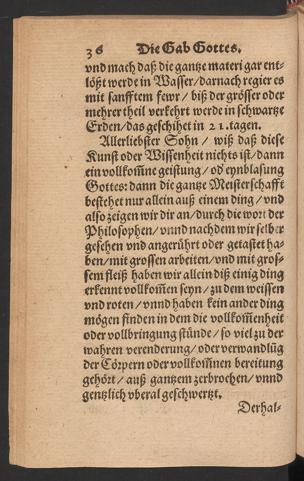 36 Die Gab Gottes.
vnd mach daß die gantze materi gar ent-
lößt werde in Wasser/darnach regier es
mit sanfftem fewr / biß der grösser oder
mehrer theil verkehrt werde in schwartze
Erden/das geschihet in 21.tagen.
Allerliebster Sohn / wiß daß diese
Kunst oder Wissenheit nichts ist/dann
ein vollkom̃ne geistung / oď eynblasung
Gottes: dann die gantze Meisterschafft
bestehet nur allein auß einem ding / vnd
also zeigen wir dir an/durch die wort der
Philosophen/ vnnd nachdem wir selber
gesehen vnd angerührt oder getastet ha-
ben/mit grossen arbeiten/vnd mit gros-
sem fleiß haben wir allein diß einig ding
erkennt vollkom̃en seyn/zu dem weissen
vnd roten / vnnd haben kein ander ding
mögen finden in dem die vollkom̃enheit
oder vollbringung stünde/ so viel zu der
wahren verenderung/ oder verwandlũg
der Cörpern oder vollkom̃nen bereitung
gehört/ auß gantzem zerbrochen/ vnnd
gentzlich vberal geschwertzt.
Derhal-